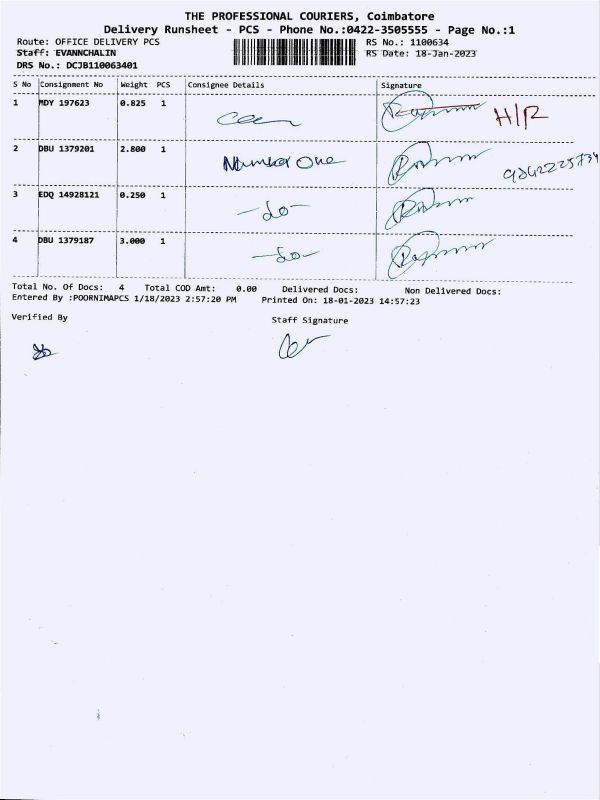 THE PROFESSIONAL COURIERS, Coimbatore
Delivery Runsheet - PCS - Phone No.:0422-3505555 - Page No.:1
Route: OFFICE DELIVERY PCS
Staff: EVANNCHALIN
DRS No.: DCJB110063401
RS No.: 1100634
RS Date: 18-Jan-2023
S No Consignment No Weight PCS Consignee Details Signature
1 MDY 197623 0.825 1 H/R
2 DBU 1379201 2.800 1 Number One
3 EDQ 14928121 0.250 1 -do-
4 DBU 1379187 3.000 1 -do-
Total No. Of Docs: 4 Total COD Amt: 0.00 Delivered Docs: Non Delivered Docs:
Entered By :POORNIMAPCS 1/18/2023 2:57:20 PM Printed On: 18-01-2023 14:57:23
Verified By Staff Signature